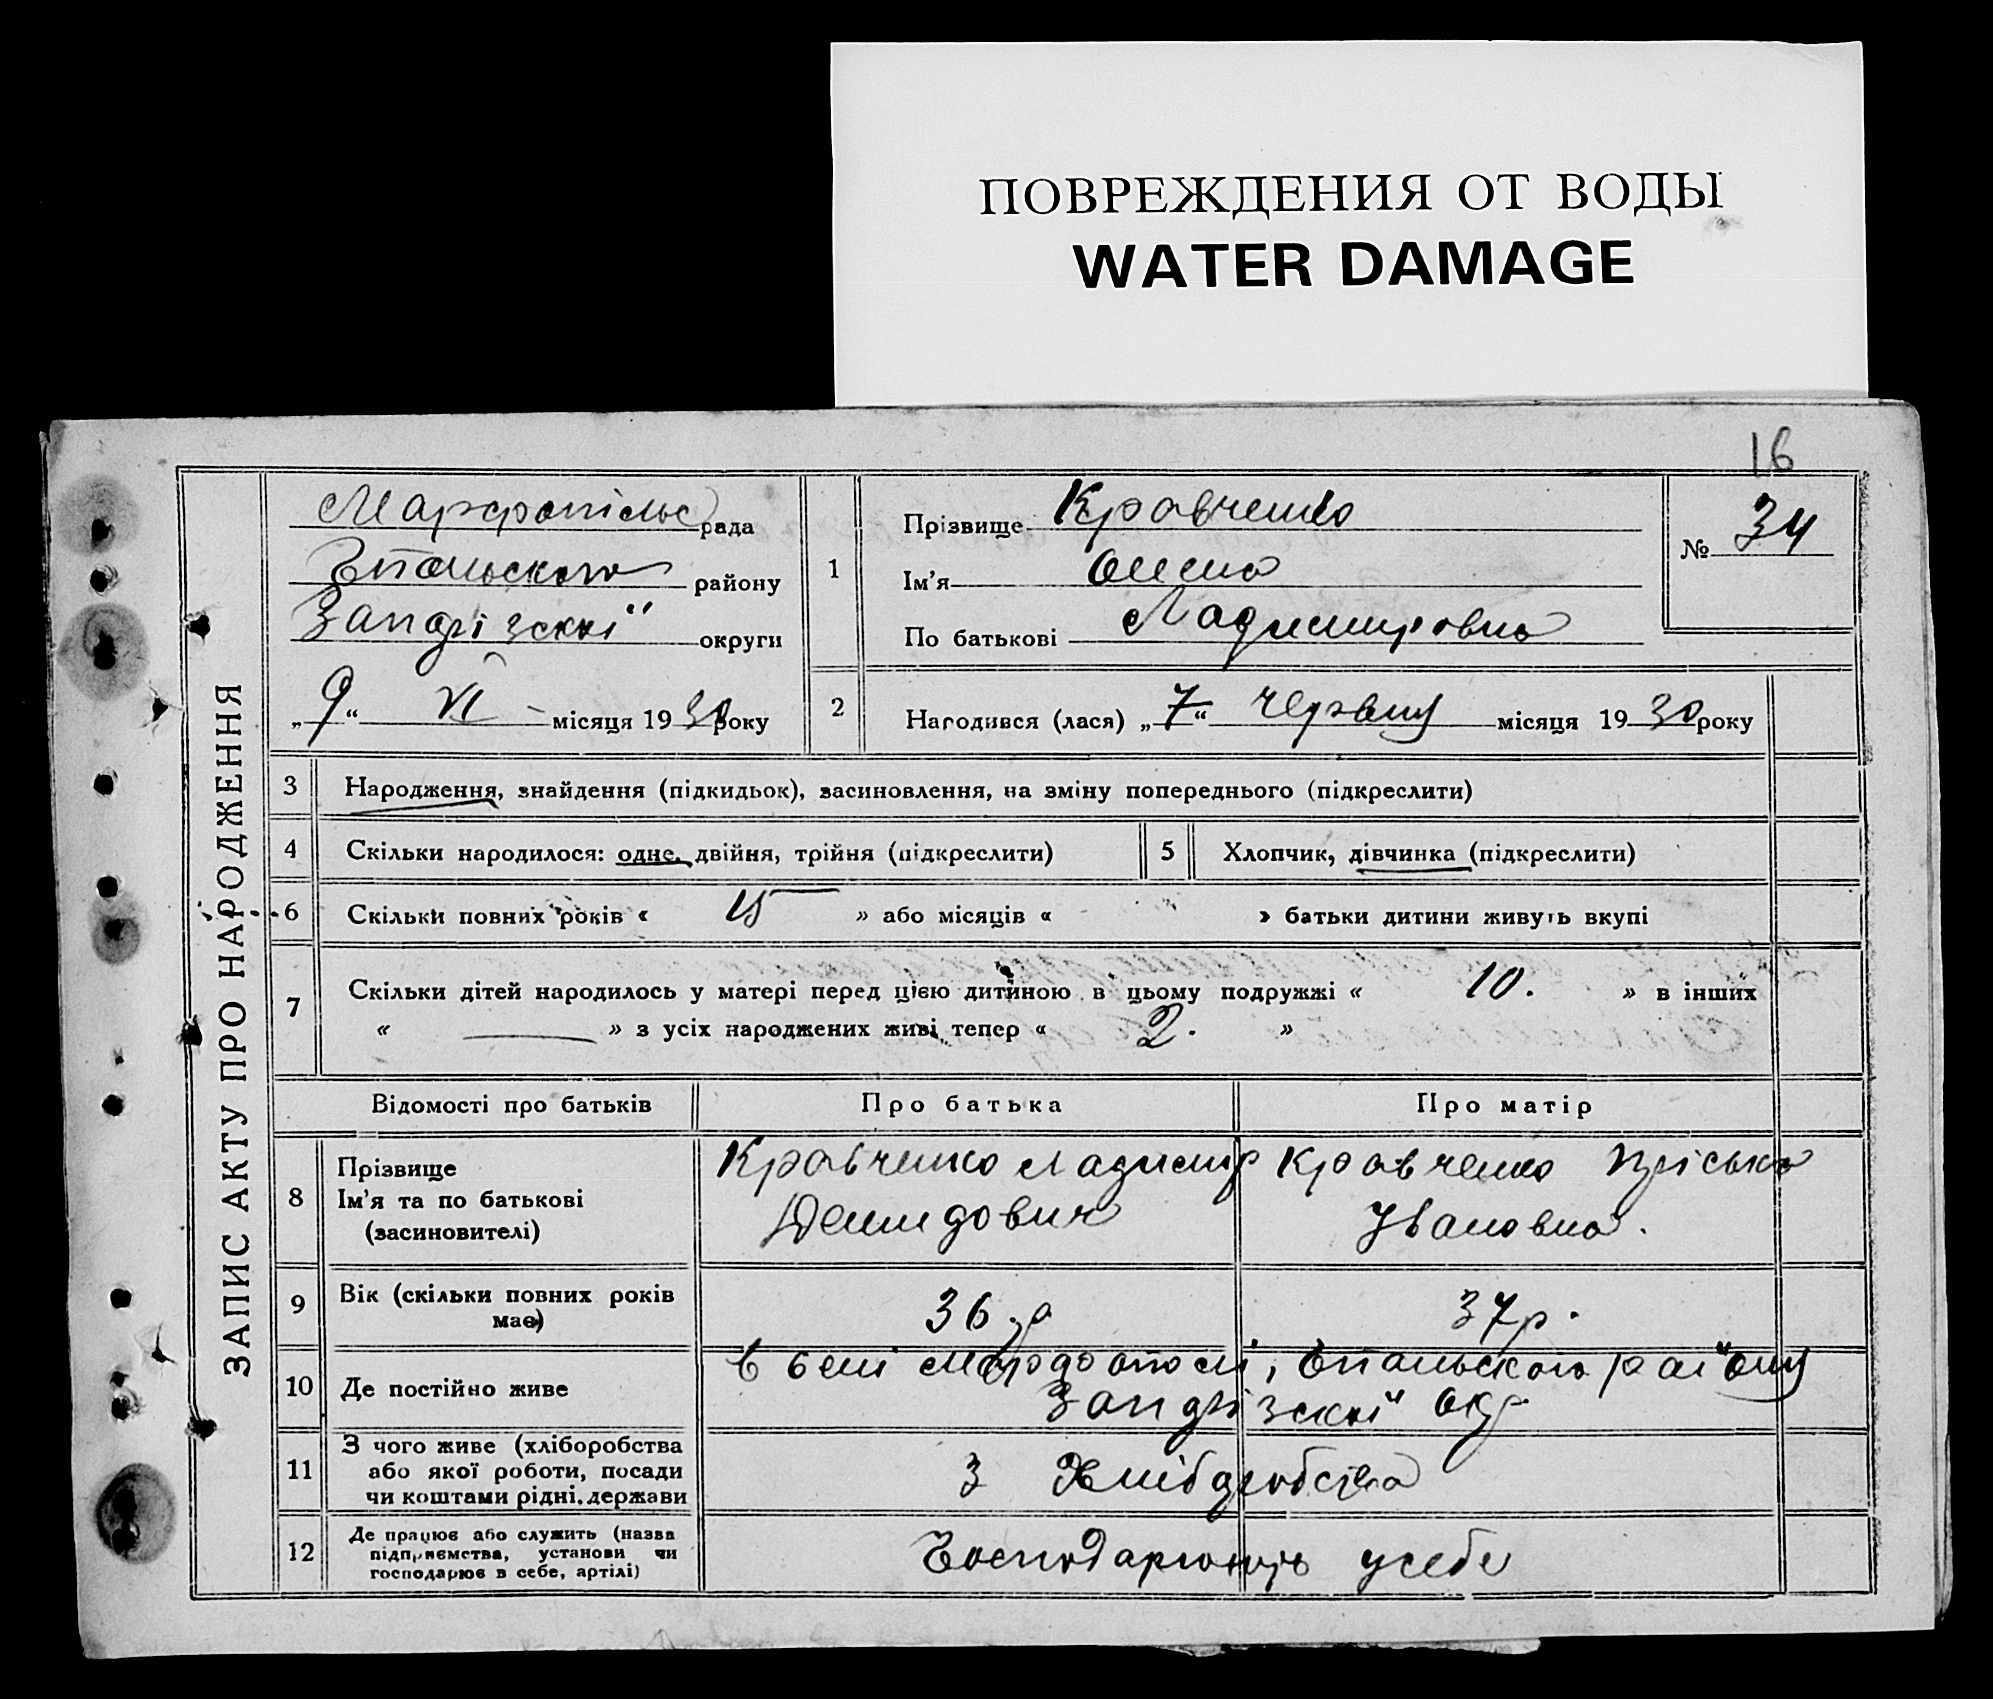 ПОВРЕЖДЕНИЯ ОТ ВОДЫ
WATER DAMAGE
16
ЗАПИС АКТУ ПРО НАРОДЖЕННЯ
Марфопільс рада
району
округи
„9“ VI місяця 1930 року
1
Прізвище Кравченко
Ім'я
По батькові Ладимировна
№ 34
2
Народився (лася) „7“ червня місяця 1930 року
3 Народження, знайдення (підкидьок), засиновлення, на зміну попереднього (підкреслити)
4 Скільки народилося: одне, двійня, трійня (підкреслити)
5 Хлопчик, дівчинка (підкреслити)
6 Скільки повних років « 15 » або місяців « » батьки дитини живуть вкупі
7 Скільки дітей народилось у матері перед цією дитиною в цьому подружжі « 10. » в інших
« — » з усіх народжених живі тепер « 2. »
Відомості про батьків Про батька Про матір
8 Прізвище
Ім'я та по батькові
(засиновителі)
Кравченко Ладимир
Демидович
Кравченко Пріська
Івановна.
9 Вік (скільки повних років
має)
36 р
37 р.
10 Де постійно живе
в селі району
окр
11 З чого живе (хліборобства
або якої роботи, посади
чи коштами рідні, держави
З Хліборобства
12 Де працює або служить (назва
підприємства, установи чи
господарює в себе, артілі)
Господарюють у себе